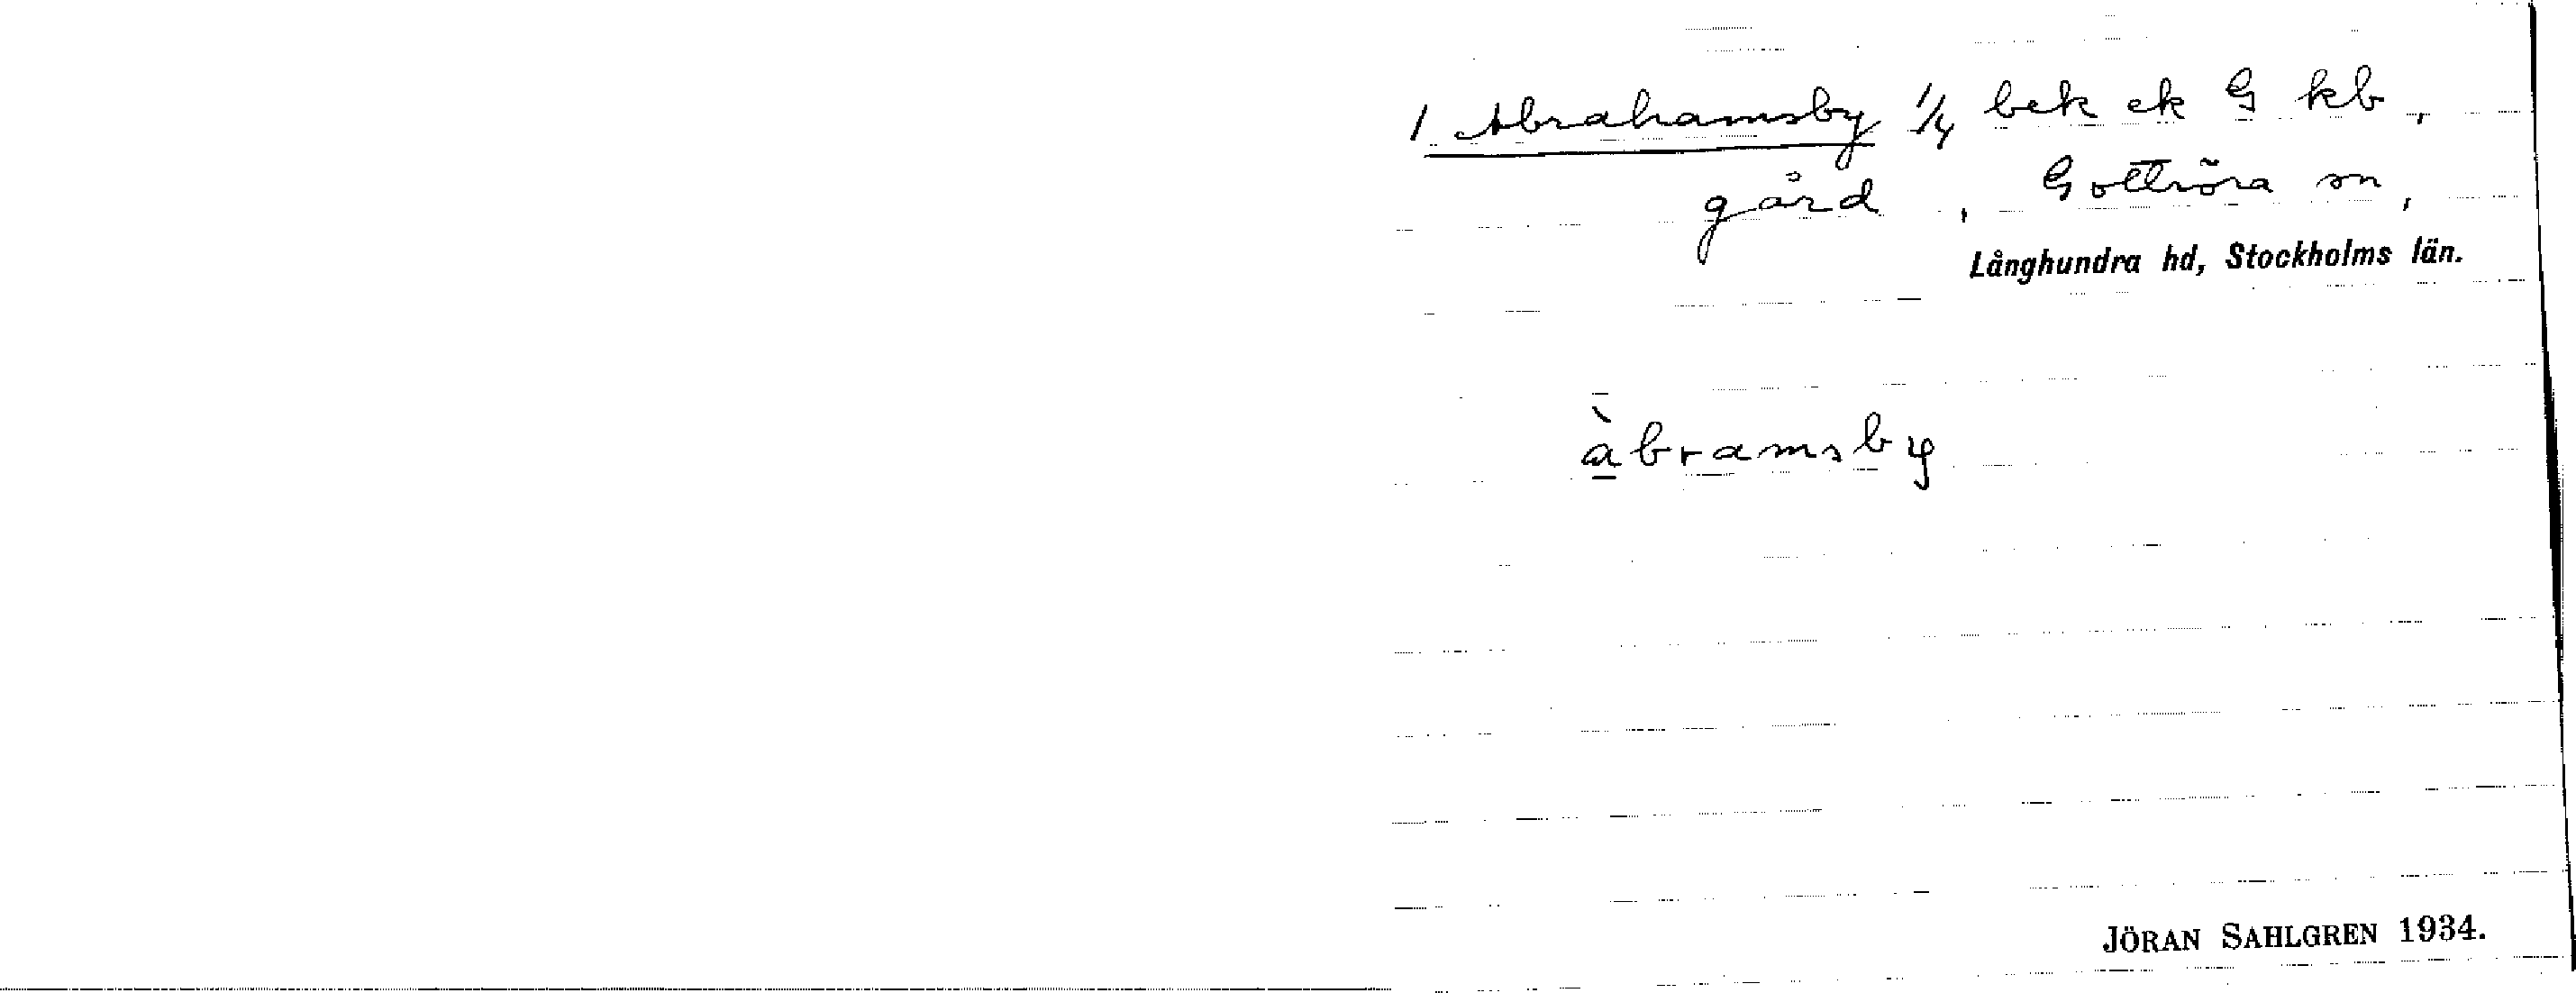 1 Abrahamsby 1/4 bek ek G kb,
gård, Gottröra sn,
Långhundra hd, Stockholms län.
àbramsby
JÖRAN SAHLGREN 1934.